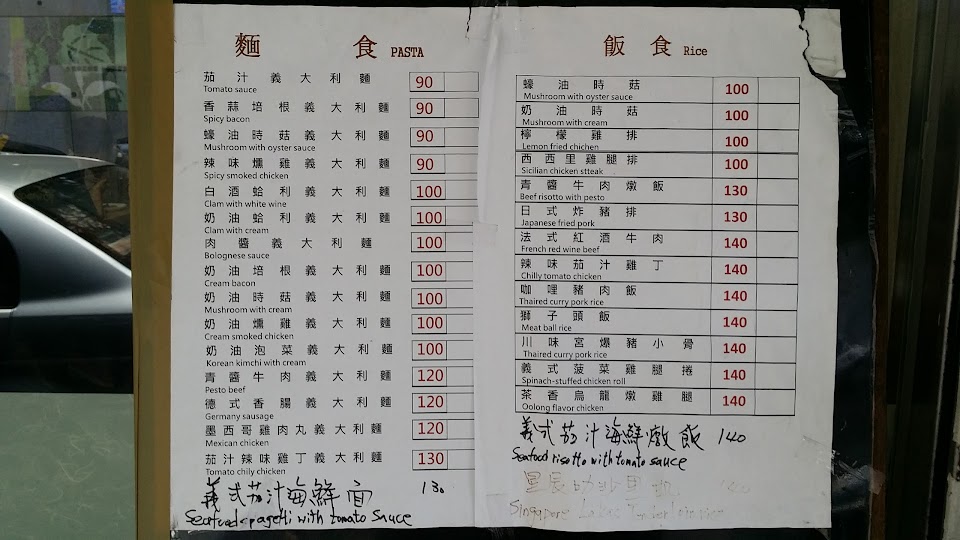 麵 食 PASTA
茄汁義大利麵 90
Tomato sauce
香蒜培根義大利麵 90
Spicy bacon
蠔油時菇義大利麵 90
Mushroom with oyster sauce
辣味燻雞義大利麵 90
Spicy smoked chicken
白酒蛤利義大利麵 100
Clam with white wine
奶油蛤利義大利麵 100
Clam with cream
肉醬義大利麵 100
Bolognese sauce
奶油培根義大利麵 100
Cream bacon
奶油時菇義大利麵 100
Mushroom with cream
奶油燻雞義大利麵 100
Cream smoked chicken
奶油泡菜義大利麵 100
Korean kimchi with cream
青醬牛肉義大利麵 120
Pesto beef
德式香腸義大利麵 120
Germany sausage
墨西哥雞肉丸義大利麵 120
Mexican chicken
茄汁辣味雞丁義大利麵 130
Tomato chily chicken
義式茄汁海鮮面 130
with tomato Sauce
飯 食 Rice
蠔油時菇 100
Mushroom with oyster sauce
奶油時菇 100
Mushroom with cream
檸檬雞排 100
Lemon fried chichen
西西里雞腿排 100
Sicilian chicken stteak
青醬牛肉燉飯 130
Beef risotto with pesto
日式炸豬排 130
Japanese fried pork
法式紅酒牛肉 140
French red wine beef
辣味茄汁雞丁 140
Chilly tomato chicken
咖哩豬肉飯 140
Thaired curry pork rice
獅子頭飯 140
Meat ball rice
川味宮爆豬小骨 140
Thaired curry pork rice
義式菠菜雞腿捲 140
Spinach-stuffed chicken roll
茶香烏龍燉雞腿 140
Oolong flavor chicken
義式茄汁海鮮燉飯 140
Seafood risotto with tomato sauce
140
Singapore